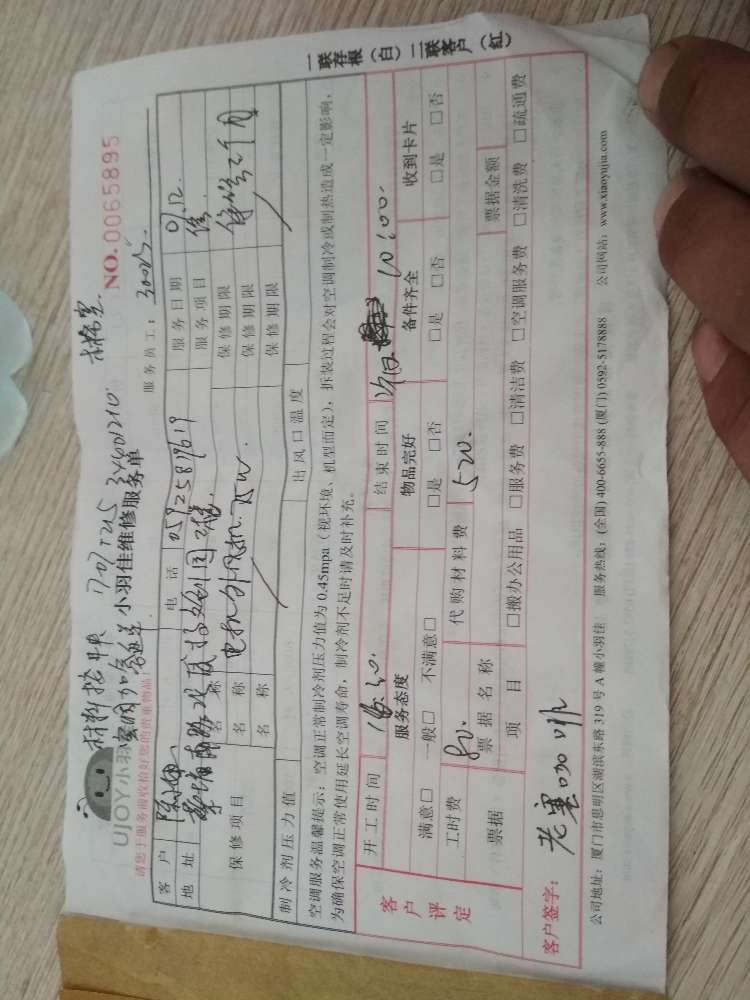 一联存根（白）二联客户（红）
NO.0065895
UJOY小羽佳
小羽佳维修服务单
请您于服务前收拾好您的贵重物品!
服务员工:
客户 电话 05925879619 服务日期 9.12.
地址 服务项目 修
保修项目 名称 保修期限
名称 保修期限
名称 保修期限
制冷剂压力值 出风口温度
空调服务温馨提示:空调正常制冷剂压力值为 0.45mpa（视环境、机型而定），拆装过程会对空调制冷或制热造成一定影响，
为确保空调正常使用延长空调寿命，制冷剂不足时请及时补充。
客户评定
开工时间 结束时间 10:00.
服务态度 物品完好 备件齐全 收到卡片
满意□ 一般□ 不满意□ □是 □否 □是 □否 □是 □否
工时费 80. 代购材料费 520.
票据 票据名称 票据金额
项目 □搬办公用品 □服务费 □清洁费 □空调服务费 □清洗费 □疏通费
客户签字: 老塞咖啡
公司地址：厦门市思明区湖滨东路 319 号 A 幢小羽佳 服务热线：(全国) 400-6655-888 (厦门) 0592-5178888 公司网站：www.xiaoyujia.com